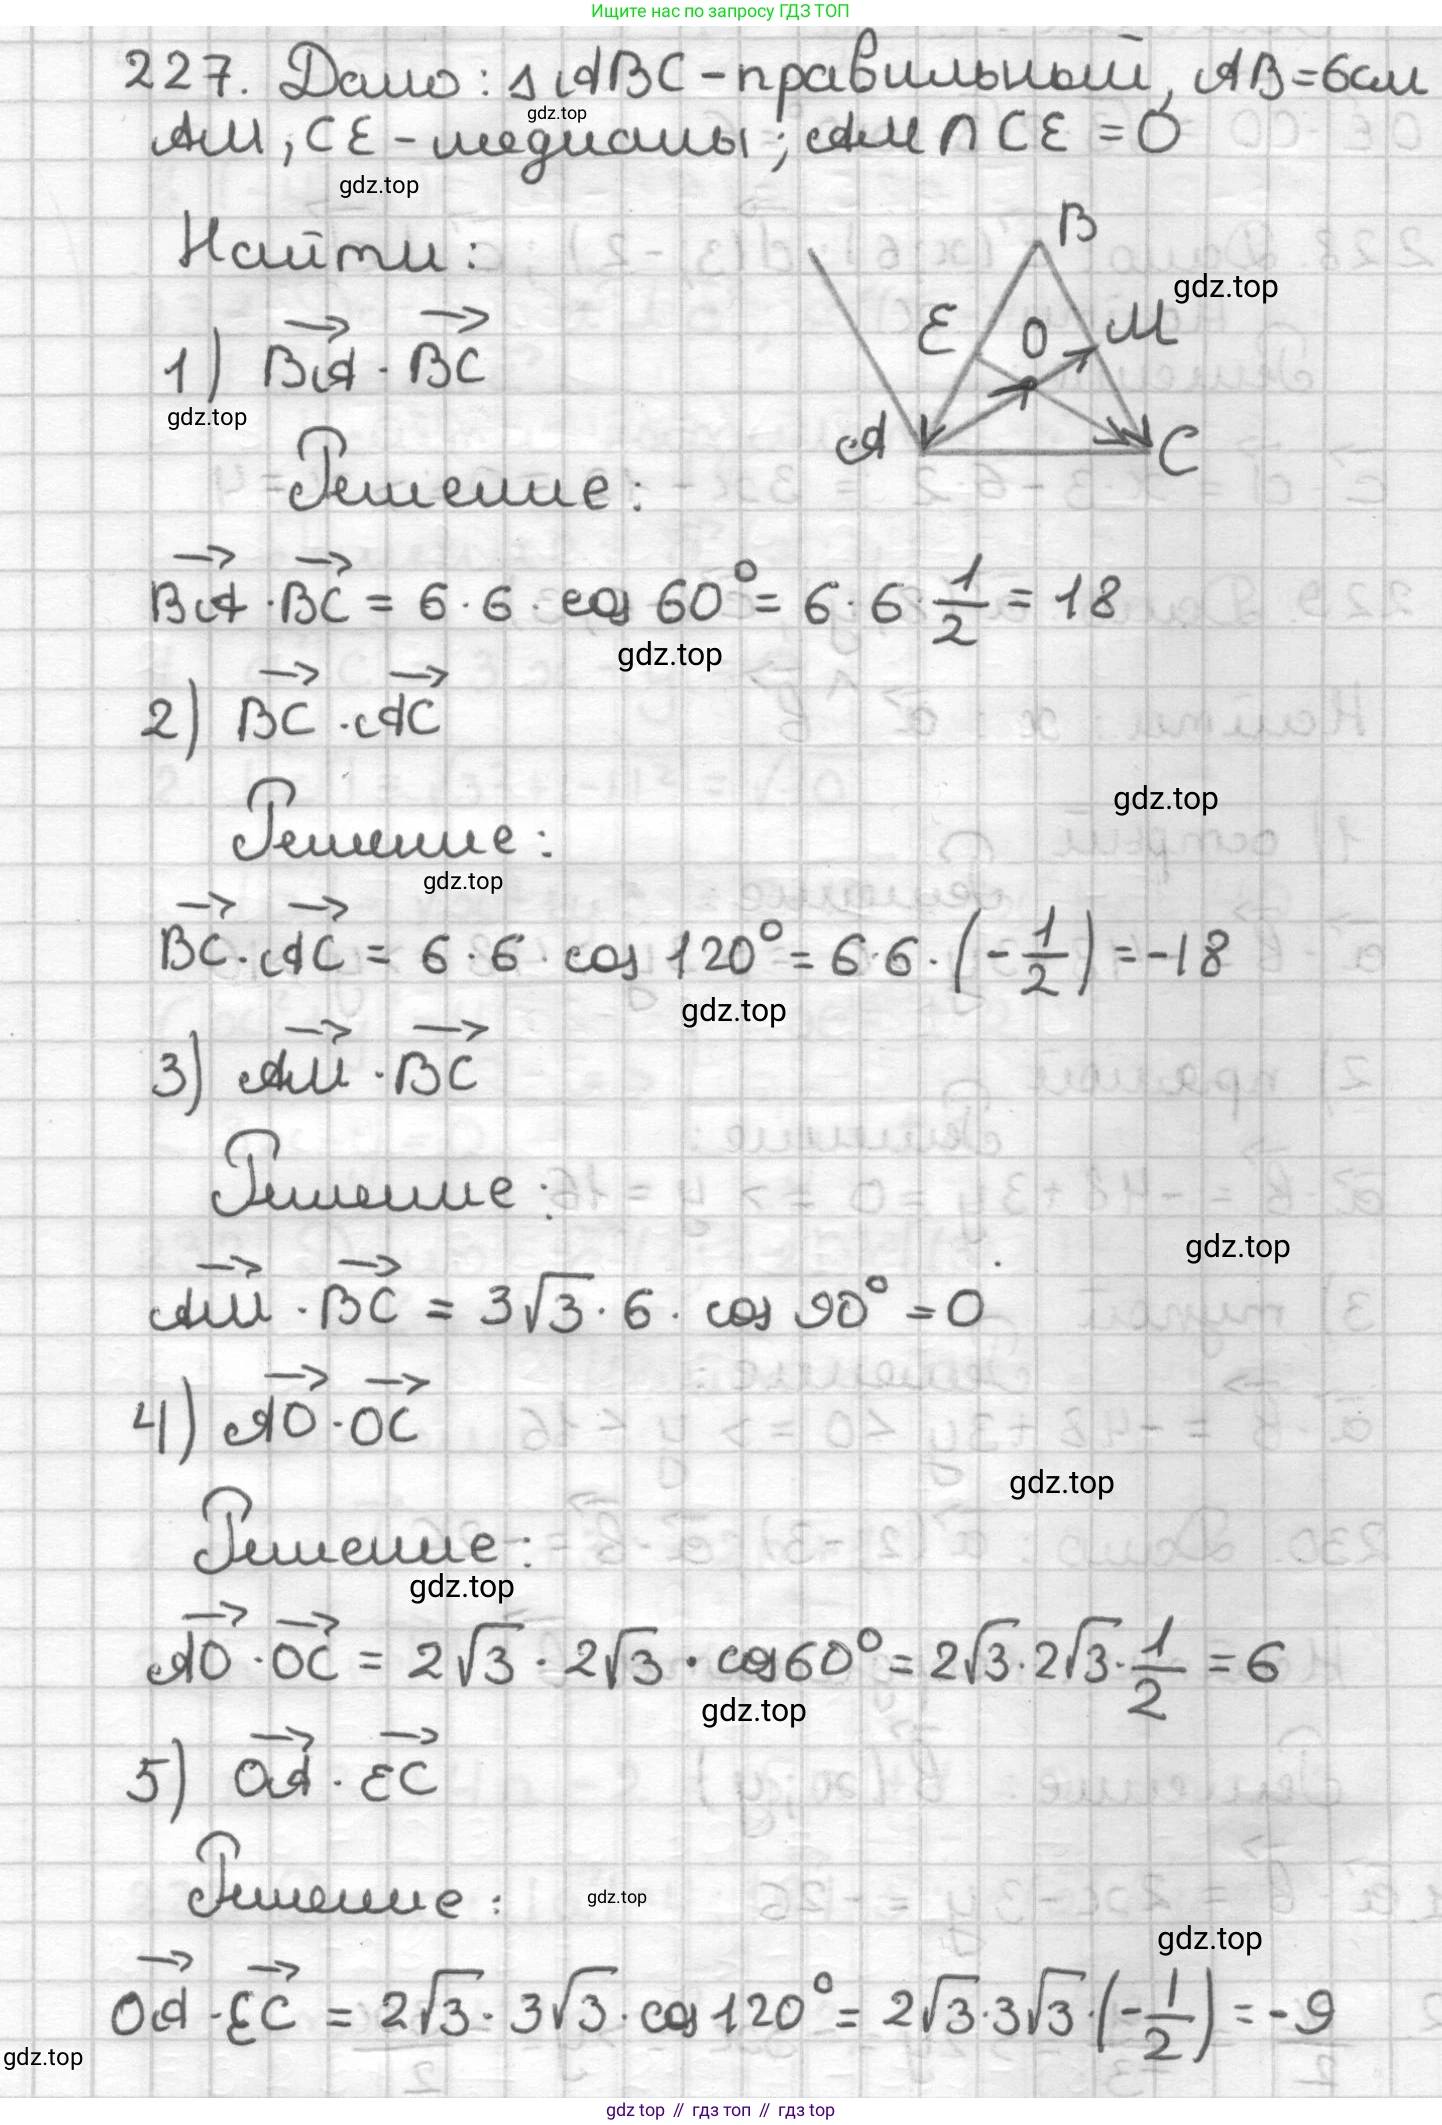 Ищите нас по запросу ГДЗ ТОП
227. Дано: △ ABC - правильный, AB = 6 см
gdz.top
AM, CE - медианы; AM ∩ CE = O
gdz.top
Найти:
B
gdz.top
E O M
1) BA · BC
gdz.top
A C
Решение:
BA · BC = 6 · 6 · cos 60° = 6 · 6 · 1/2 = 18
gdz.top
2) BC · AC
gdz.top
Решение:
gdz.top
BC · AC = 6 · 6 · cos 120° = 6 · 6 · (-1/2) = -18
gdz.top
3) AM · BC
Решение:
gdz.top
AM · BC = 3√3 · 6 · cos 90° = 0
4) AO · OC
gdz.top
Решение:
gdz.top
AO · OC = 2√3 · 2√3 · cos 60° = 2√3 · 2√3 · 1/2 = 6
gdz.top
5) OA · EC
Решение:
gdz.top
gdz.top
OA · EC = 2√3 · 3√3 · cos 120° = 2√3 · 3√3 · (-1/2) = -9
gdz.top
gdz top // гдз топ // гдз top